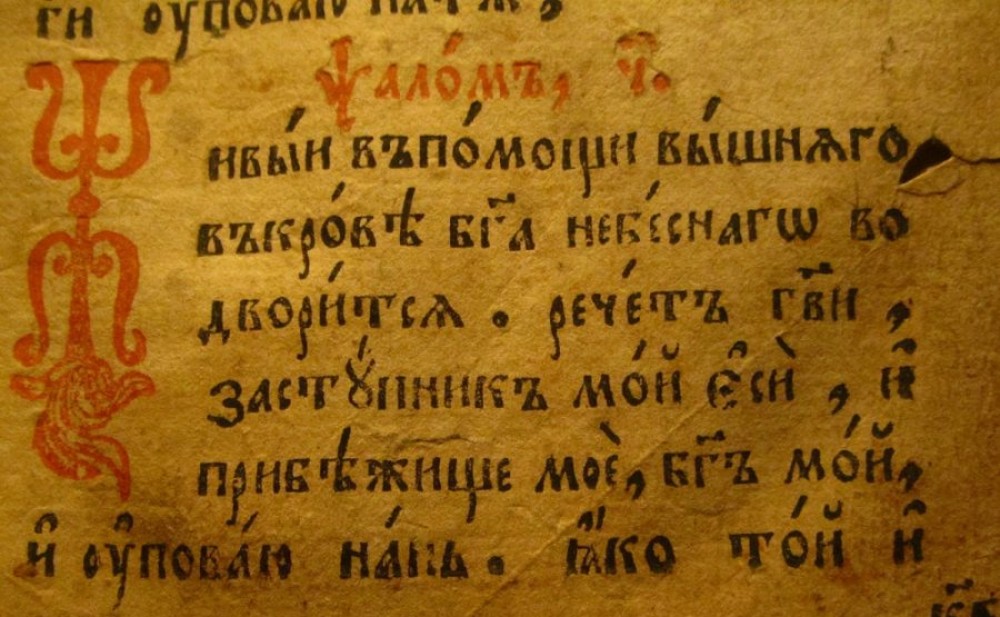 ѱало́мъ, ч҃.
Живы́й въпо́мощи вы́шнѧго,
въкро́вѣ бг҃а небе́снагѡ во
двори́тсѧ . рече́тъ гв҃и ,
застꙋ́пникъ мо́й є҆сѝ , и҆
прибѣ́жище моѐ, бг҃ъ мо́й,
и҆ ᲂу҆пова́ю на́нь . ꙗ҆́ко то́й и҆